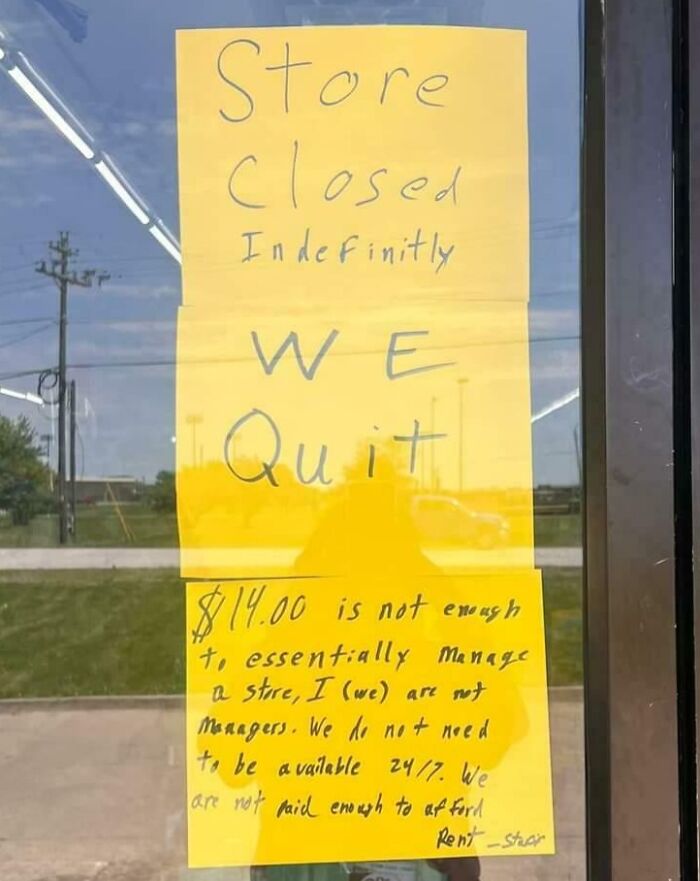 Store
Closed
Indefinitly
WE
Quit
$14.00 is not enough
to essentially manage
a store, I (we) are not
Managers. We do not need
to be available 24/7. We
are not paid enough to afford
Rent